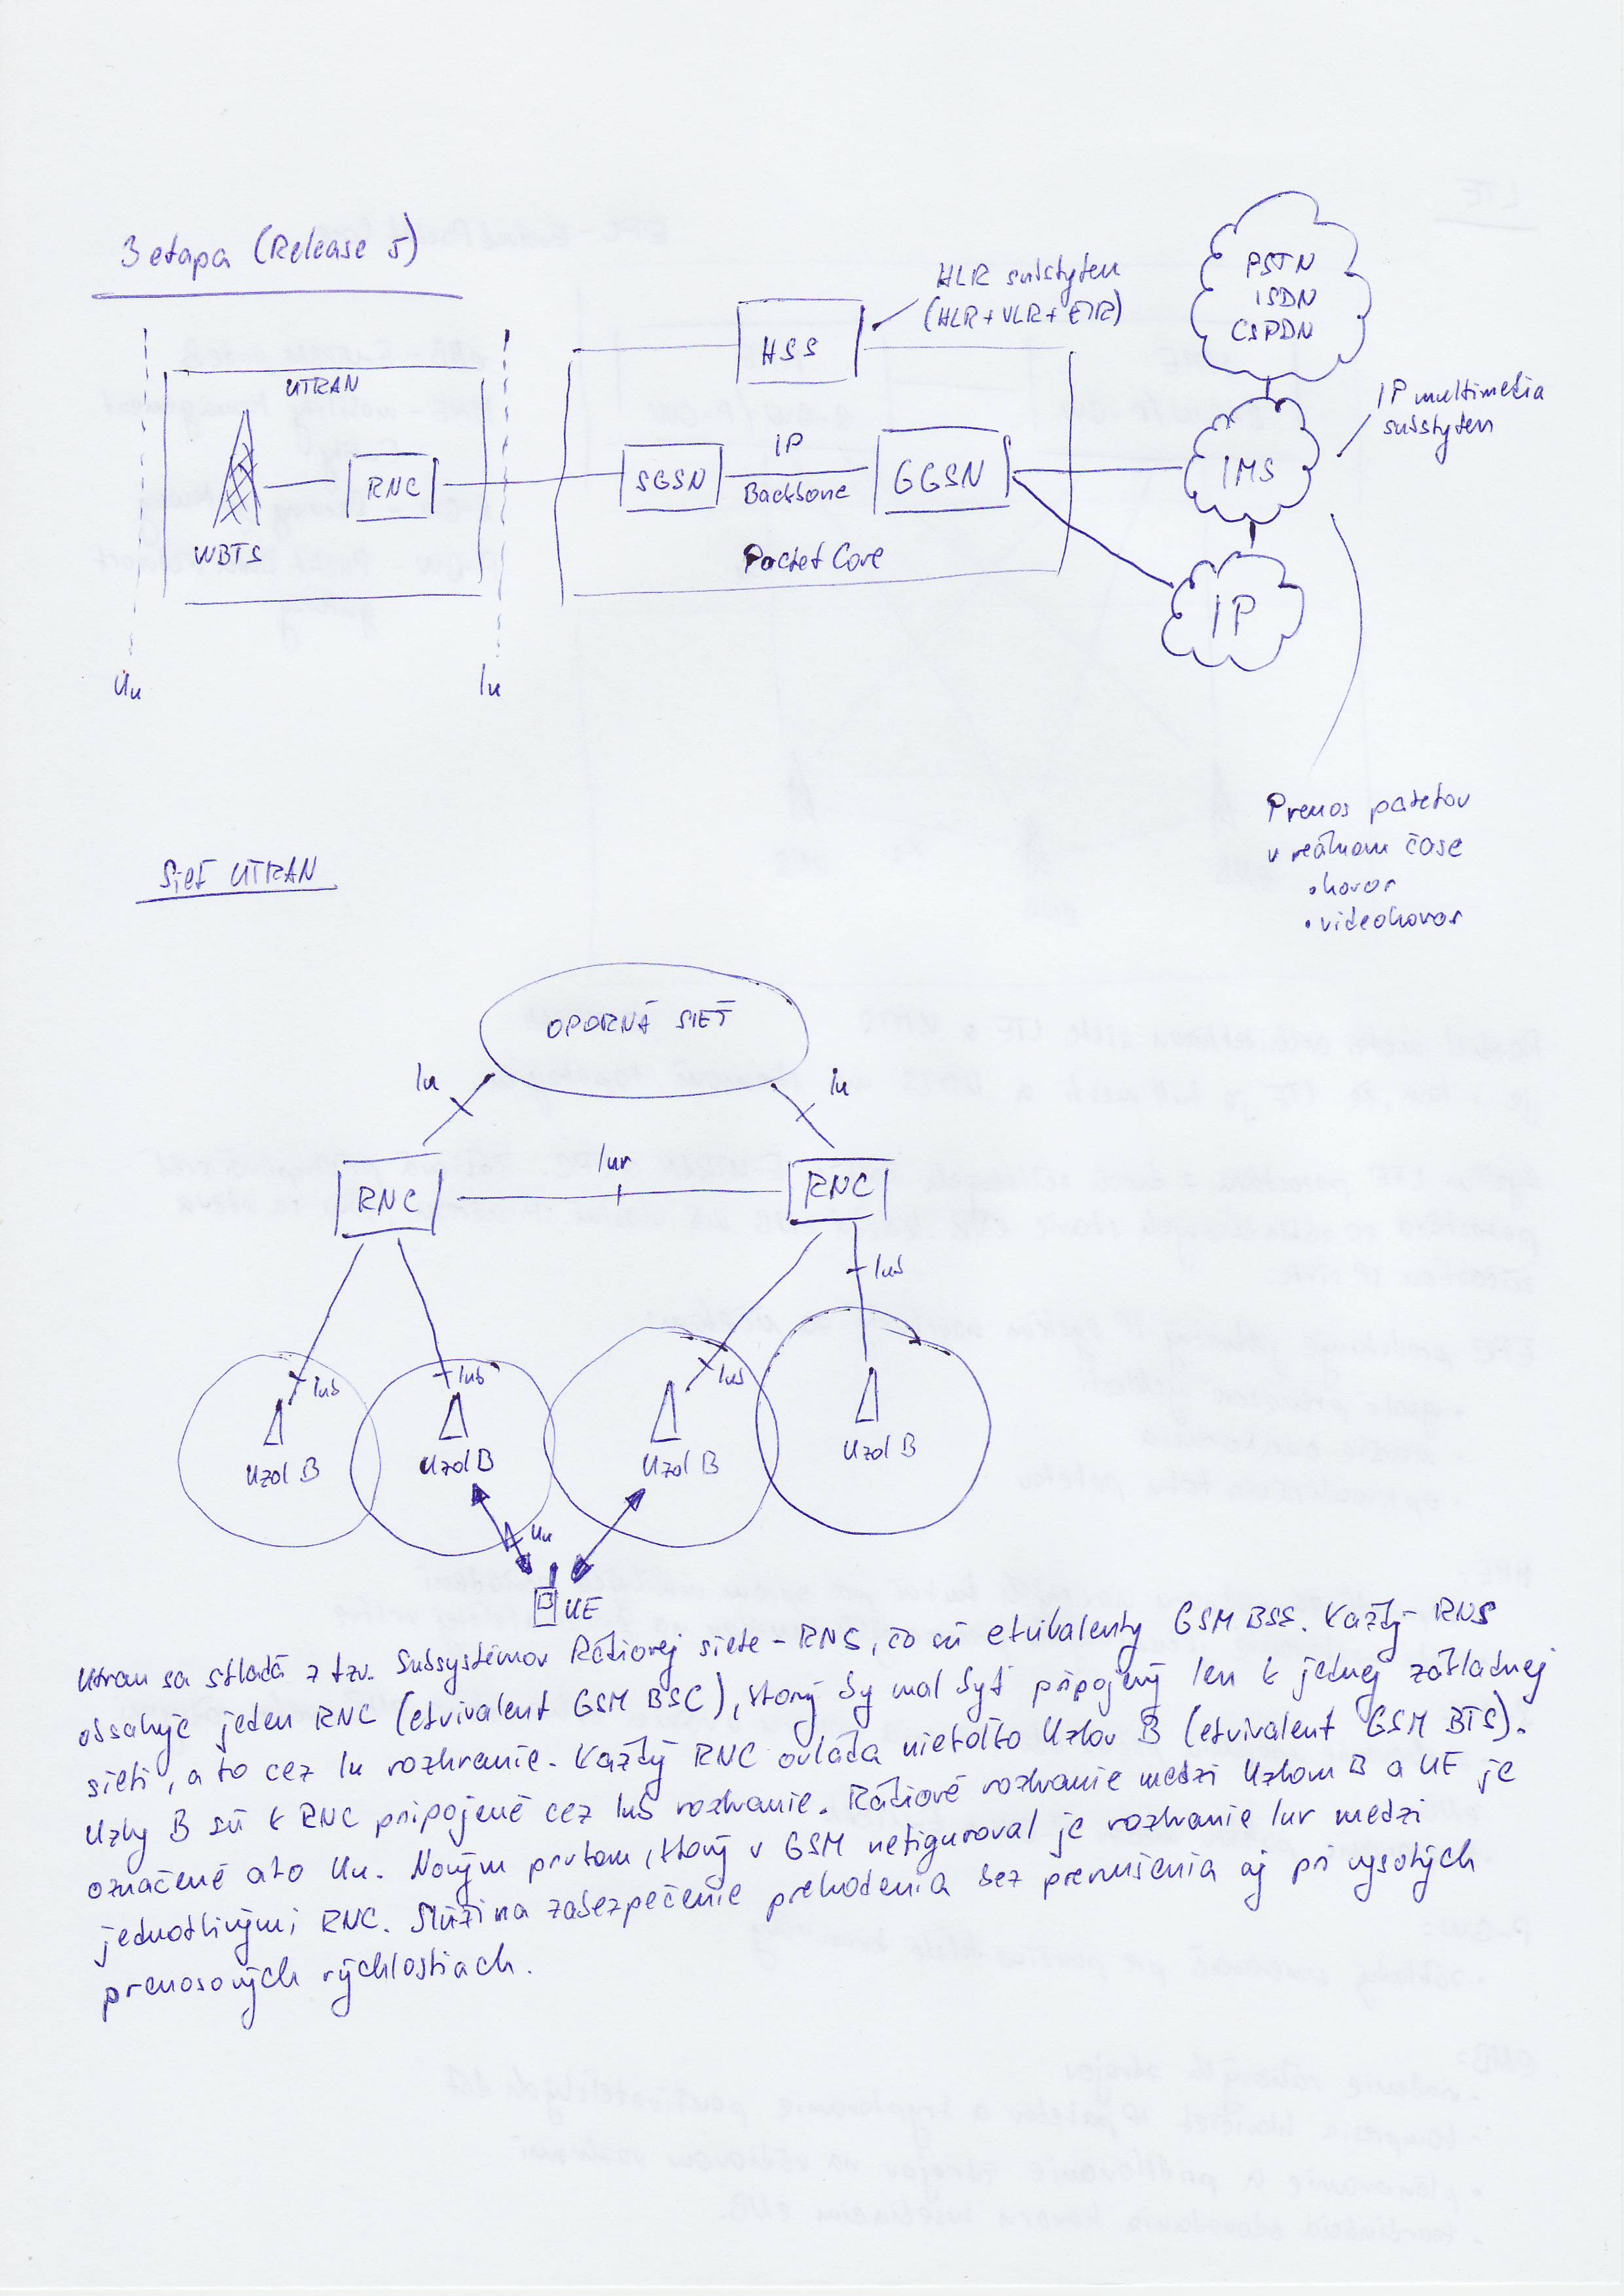 3 etapa (Release 5)
HLR substyten
(HLR + VLR + EIR)
PSTN
ISDN
CSPDN
HSS
UTRAN
IP multimedia
substyten
IP
IMS
RNC
SGSN
Backbone
GGSN
WBTS
Packet Core
IP
Uu
Iu
Prenos paketov
v reálnom čase
• hovor
• videohovor
Sieť UTRAN
OPORNÁ SIEŤ
Iu
Iu
Iur
RNC
RNC
Iub
Iub
Iub
Iub
Uzol B
Uzol B
Uzol B
Uzol B
Uu
UE
Utran sa skladá z tzv. Subsystémov Rádiovej siete - RNS, čo sú ekvivalenty GSM BSS. Každý RNS
obsahuje jeden RNC (ekvivalent GSM BSC), ktorý by mal byť pripojený len k jednej základnej
sieti, a to cez Iu rozhranie. Každý RNC ovláda niekoľko Uzlov B (ekvivalent GSM BTS).
Uzly B sú k RNC pripojené cez Iub rozhranie. Rádiové rozhranie medzi Uzlom B a UE je
označené ako Uu. Novým prvkom, ktorý v GSM nefiguroval je rozhranie Iur medzi
jednotlivými RNC. Slúži na zabezpečenie prehodenia bez prerušenia aj pri vysokých
prenosových rýchlostiach.